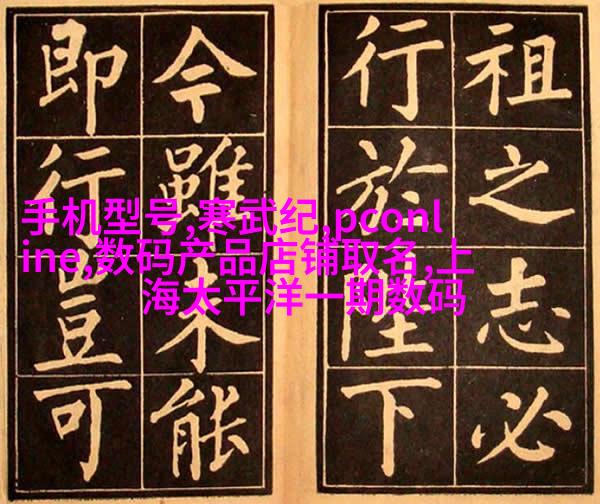 祖之志必
行於陛下
今雖未能
即行豈可
手机型号,寒武纪,pconl
ine,数码产品店铺取名,上
海太平洋一期数码